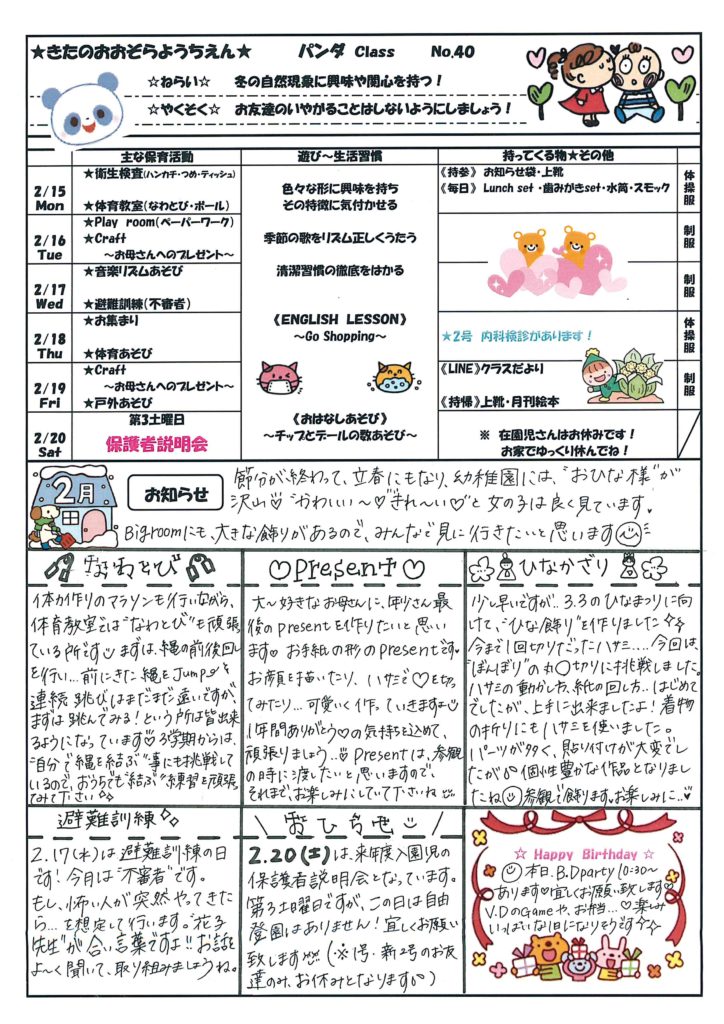 ★きたのおおぞらようちえん★ パンダ Class No.40
☆ねらい☆ 冬の自然現象に興味や関心を持つ！
☆やくそく☆ お友達のいやがることはしないようにしましょう！
主な保育活動 遊び～生活習慣 持ってくる物★その他
2/15 Mon
★衛生検査(ハンカチ・つめ・ティッシュ)
★体育教室(なわとび・ボール)
色々な形に興味を持ち
その特徴に気付かせる
《持参》 お知らせ袋・上靴
《毎日》 Lunch set ・歯みがきset・水筒・スモック
体操服
2/16 Tue
★Play room(ペーパーワーク)
★Craft
～お母さんへのプレゼント～
季節の歌をリズム正しくうたう
制服
2/17 Wed
★音楽リズムあそび
★避難訓練(不審者)
清潔習慣の徹底をはかる
制服
2/18 Thu
★お集まり
★体育あそび
《ENGLISH LESSON》
～Go Shopping～
★2号 内科検診があります！
体操服
2/19 Fri
★Craft
～お母さんへのプレゼント～
★戸外あそび
《LINE》クラスだより
《持帰》上靴・月刊絵本
制服
2/20 Sat
第3土曜日
保護者説明会
《おはなしあそび》
～チップとデールの数あそび～
※ 在園児さんはお休みです！
お家でゆっくり休んでね！
2月
お知らせ
節分が終わって、立春にもなり、幼稚園には、“おひな様”が
沢山♡“かわいい～♡”“きれ～い♡”と女の子は良く見ています。
Big roomにも、大きな飾りがあるので、みんなで見に行きたいと思います
なわとび
体力作りのマラソンも行いながら、
体育教室では“なわとび”も頑張
っている所です。まずは、縄の前後回し
を行い…前にきた縄をJump
連続跳びはまだまだ遠いですが、
まずは跳んでみる！という所は皆出来
るようになっています♡3学期からは、
“自分で縄を結ぶ”事にも挑戦して
いるので、おうちでも“結ぶ”練習を頑張っ
てみて下さい
♡present♡
大～好きなお母さんに、年少さん最
後のpresentを作りたいと思い
ます。お手紙の形のpresentです。
お顔を描いたり、ハサミで♡を切っ
てみたり…可愛いく作っていきますよ
1年間ありがとう♡の気持ちを込めて、
頑張りましょう…♡Presentは、参観
の時に渡したいと思いますので、
それまで、お楽しみにしていて下さいね
ひなかざり
少し早いですが…3.3のひなまつりに向
けて、“ひな飾り”を作りました
今まで1回切りだったハサミ…今回は、
“ぼんぼり”の丸〇切りに挑戦しました。
ハサミの動かし方、紙の回し方…はじめて
でしたが、上手に出来ましたよ！着物
の折りにもハサミを使いました。
パーツが多く、貼り付けが大変でし
たが個性豊かな作品となりまし
たね 参観で飾ります。お楽しみに…♥
避難訓練
2.17(水)は避難訓練の日
です！今月は“不審者”です。
もし、怖い人が突然やってきた
ら…を想定して行います。“花子
先生”が合い言葉ですよ!!お話を
よ～く聞いて、取り組みましょうね。
おひらせ
2.20(土)は、来年度入園児の
保護者説明会となっています。
第3土曜日ですが、この日は自由
登園はありません！宜しくお願い
致します (※1号・新2号のお友
達のみ、お休みとなります)
☆ Happy Birthday ☆
本日、B.Dparty10:30～
あります♡宜しくお願い致します♡
V.DのGameや、お弁当…♡楽しみ
いっぱいな1日になりそうです